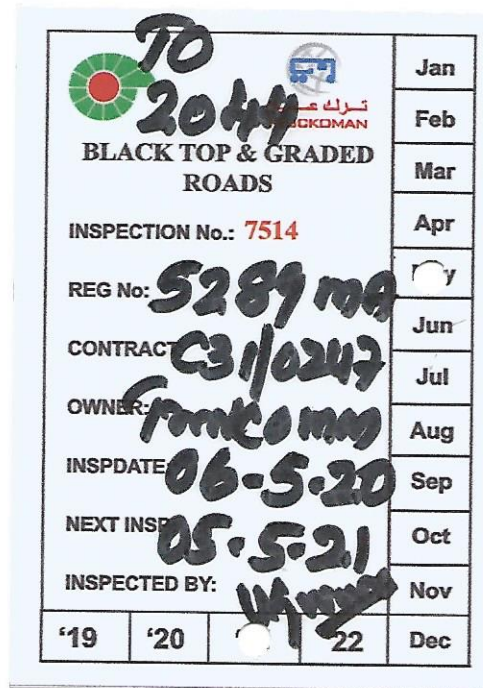 TO
2044
ترك
CKOMAN
BLACK TOP & GRADED
ROADS
INSPECTION No.: 7514
REG No: 5289 MA
CONTRACT C31/0247
OWNER:
INSPDATE 06-5-20
NEXT INSP 05-5-21
INSPECTED BY:
Jan
Feb
Mar
Apr
Jun
Jul
Aug
Sep
Oct
Nov
Dec
'19
'20
22